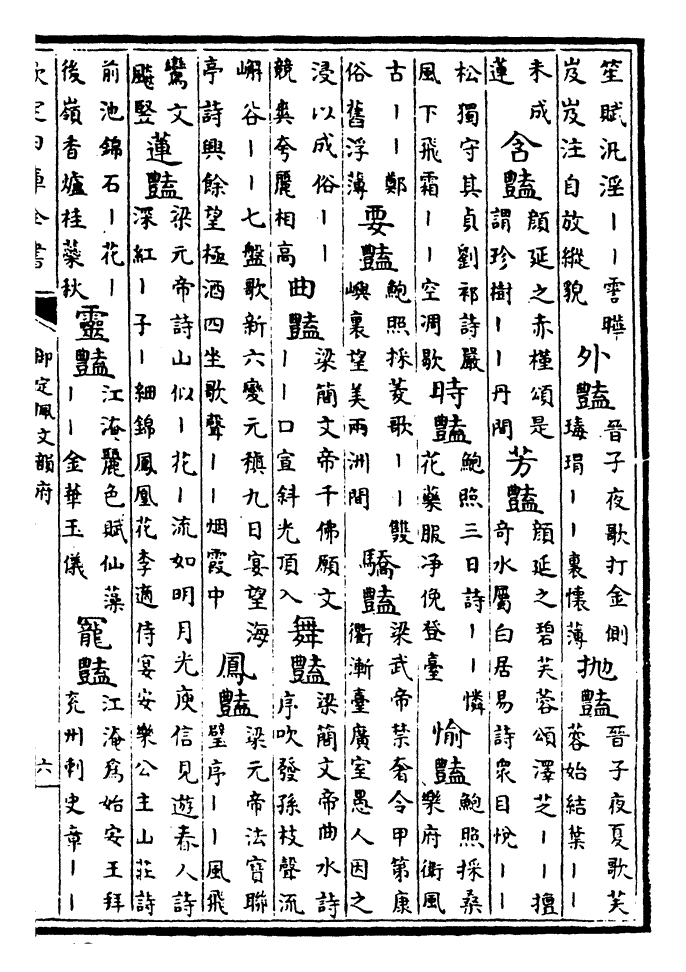 笙賦汎淫丨丨雲曄
岌岌注自放縱貌
外豔
晉子夜歌打金側
瑇瑁丨丨裏懷薄
抛豔
晉子夜夏歌芙
蓉始結葉丨丨
未成
蓮
含豔
顏延之赤槿頌是
謂珍樹丨丨丹間
芳豔
顏延之碧芙蓉頌澤芝丨丨擅
奇水屬白居易詩衆目悅丨丨
松獨守其貞劉祁詩嚴
風下飛霜丨丨空凋歇
時豔
鮑照三日詩丨丨憐
花藥服淨俛登臺
愉豔
鮑照採桑
樂府衛風
古丨丨鄭
俗舊浮薄
要豔
鮑照採菱歌丨丨雙
嶼裏望美兩洲間
驕豔
梁武帝禁奢令甲第康
衢漸臺廣室愚人因之
浸以成俗丨丨
競爽夸麗相高
曲豔
梁簡文帝千佛願文
丨丨口宣斜光頂入
舞豔
梁簡文帝曲水詩
序吹發孫枝聲流
嶰谷丨丨七盤歌新六變元稹九日宴望海
亭詩興餘望極酒四坐歌聲丨丨烟霞中
鳳豔
梁元帝法寶聯
璧序丨丨風飛
鸞文
飈豎
蓮豔
梁元帝詩山似丨花丨流如明月光庾信見遊春人詩
深紅丨子丨細錦鳳凰花李適侍宴安樂公主山莊詩
前池錦石丨花丨
後嶺香爐桂蘂秋
靈豔
江淹麗色賦仙藻
丨丨金華玉儀
寵豔
江淹爲始安王拜
兖州刺史章丨丨
欽定四庫全書
御定佩文韻府
六